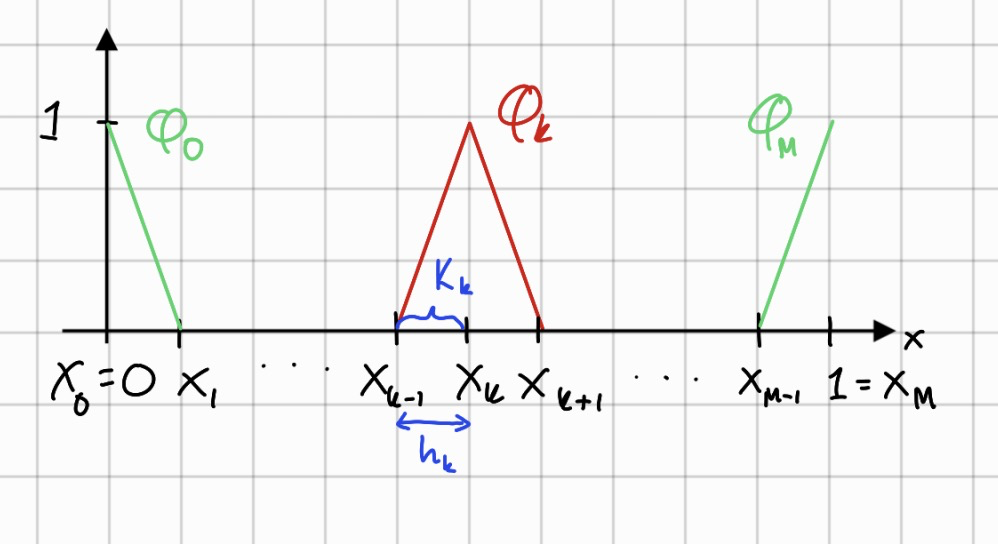 1 φ₀ φₖ φ_M
Kₖ
x
x₀ = 0 x₁ . . . xₖ₋₁ xₖ xₖ₊₁ . . . x_{M-1} 1 = x_M
hₖ